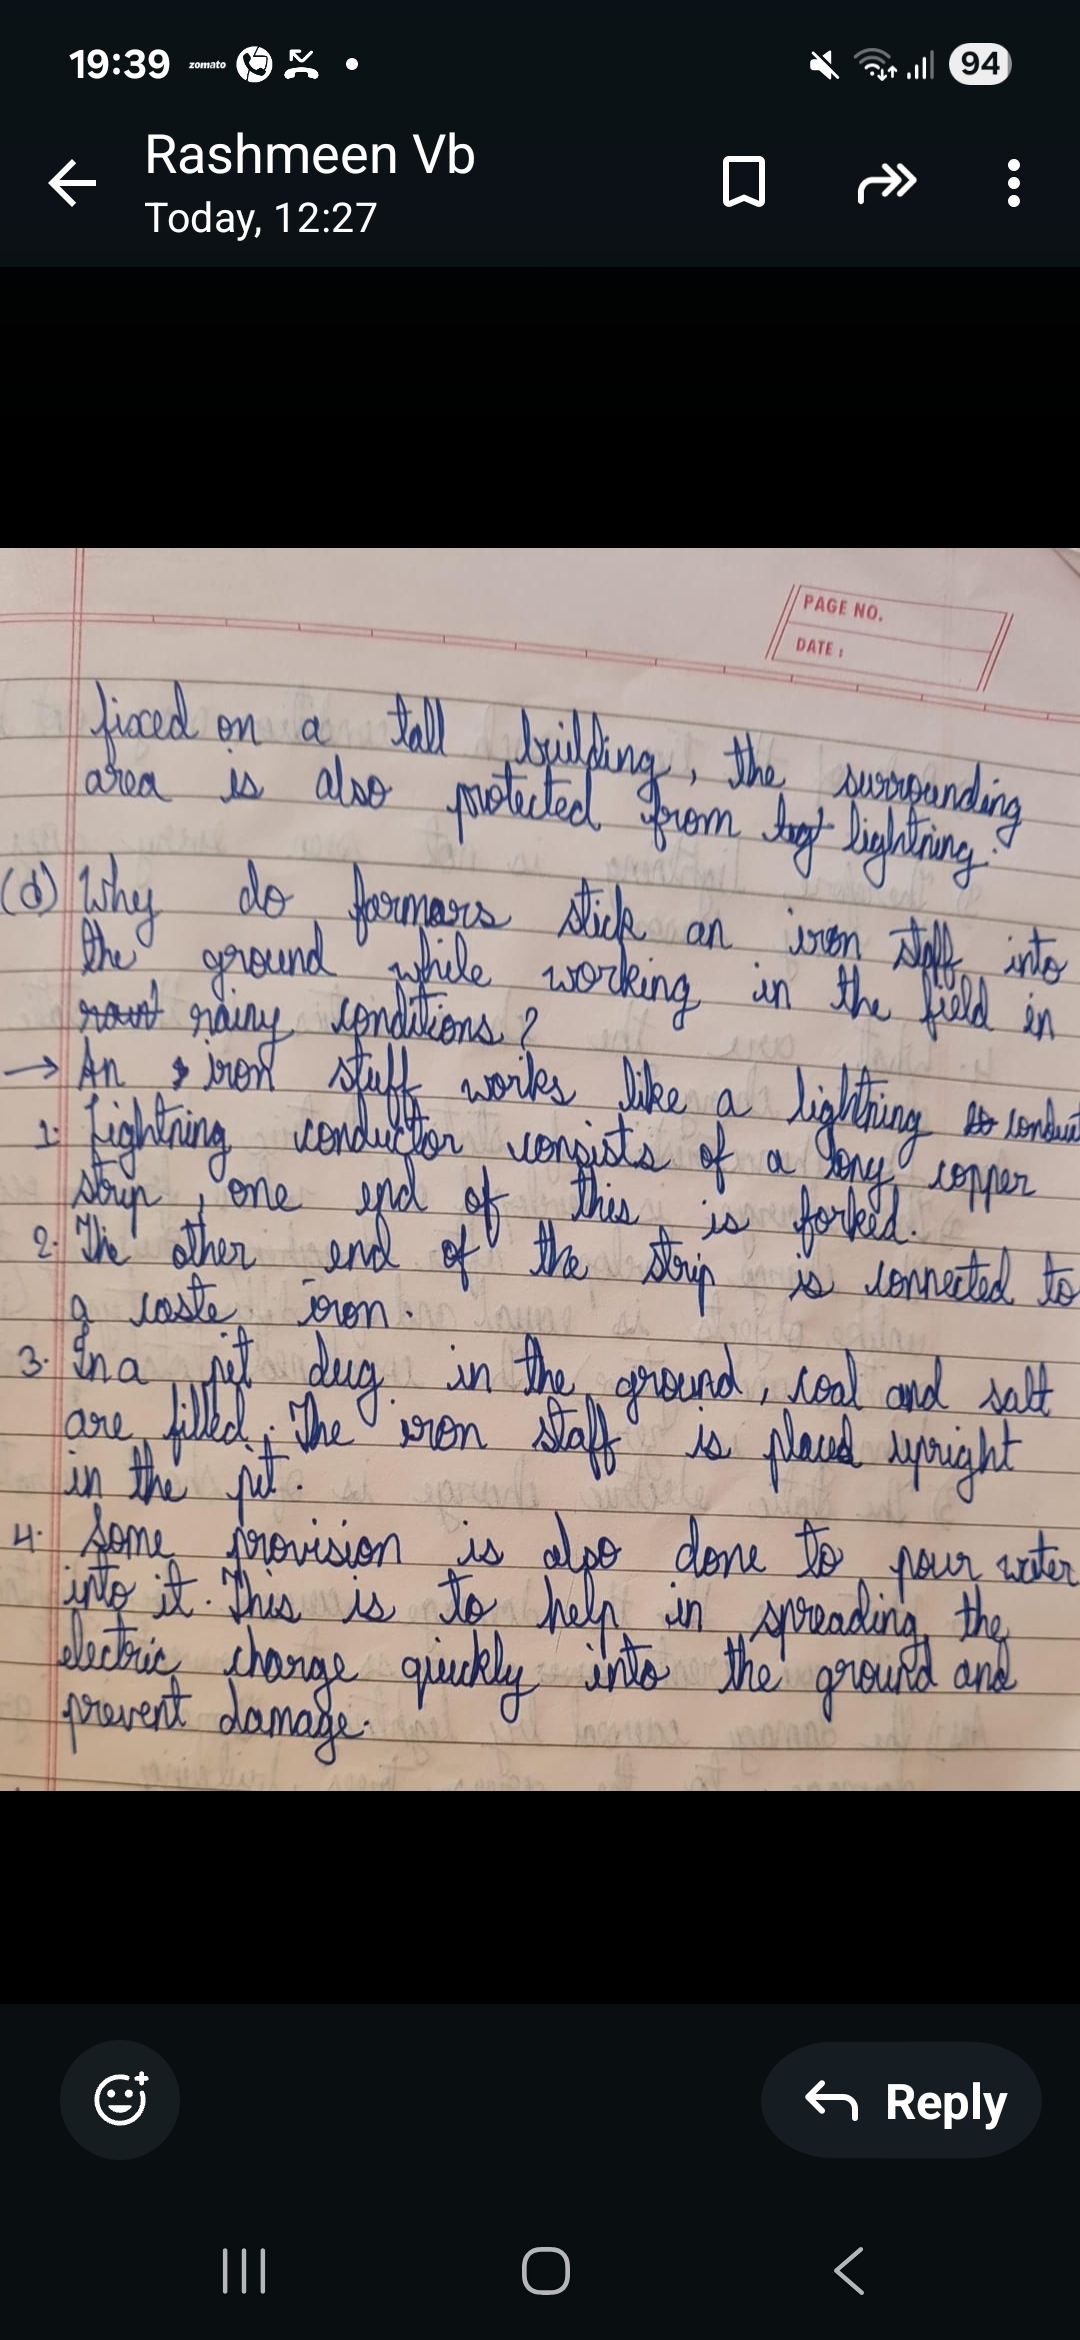 19:39 zomato 94
Rashmeen Vb
Today, 12:27
PAGE NO.
DATE:
fixed on a tall building, the surrounding
area is also protected from ligt lightning.
(d) Why do farmars stick an iron staff into
the ground while working in the field in
raint rainy conditions?
→ An s iron stuff works like a lightning conduct
1. Lightning conductor consists of a long copper
strip, one end of this is forked.
2. The other end of the strip is connected to
a caste iron.
3. In a pit dug in the ground, coal and salt
are filled. The iron staff is placed upright
in the pit.
4. Some provision is also done to pour water
into it. This is to help in spreading the
electric charge quickly into the ground and
prevent damage.
Reply